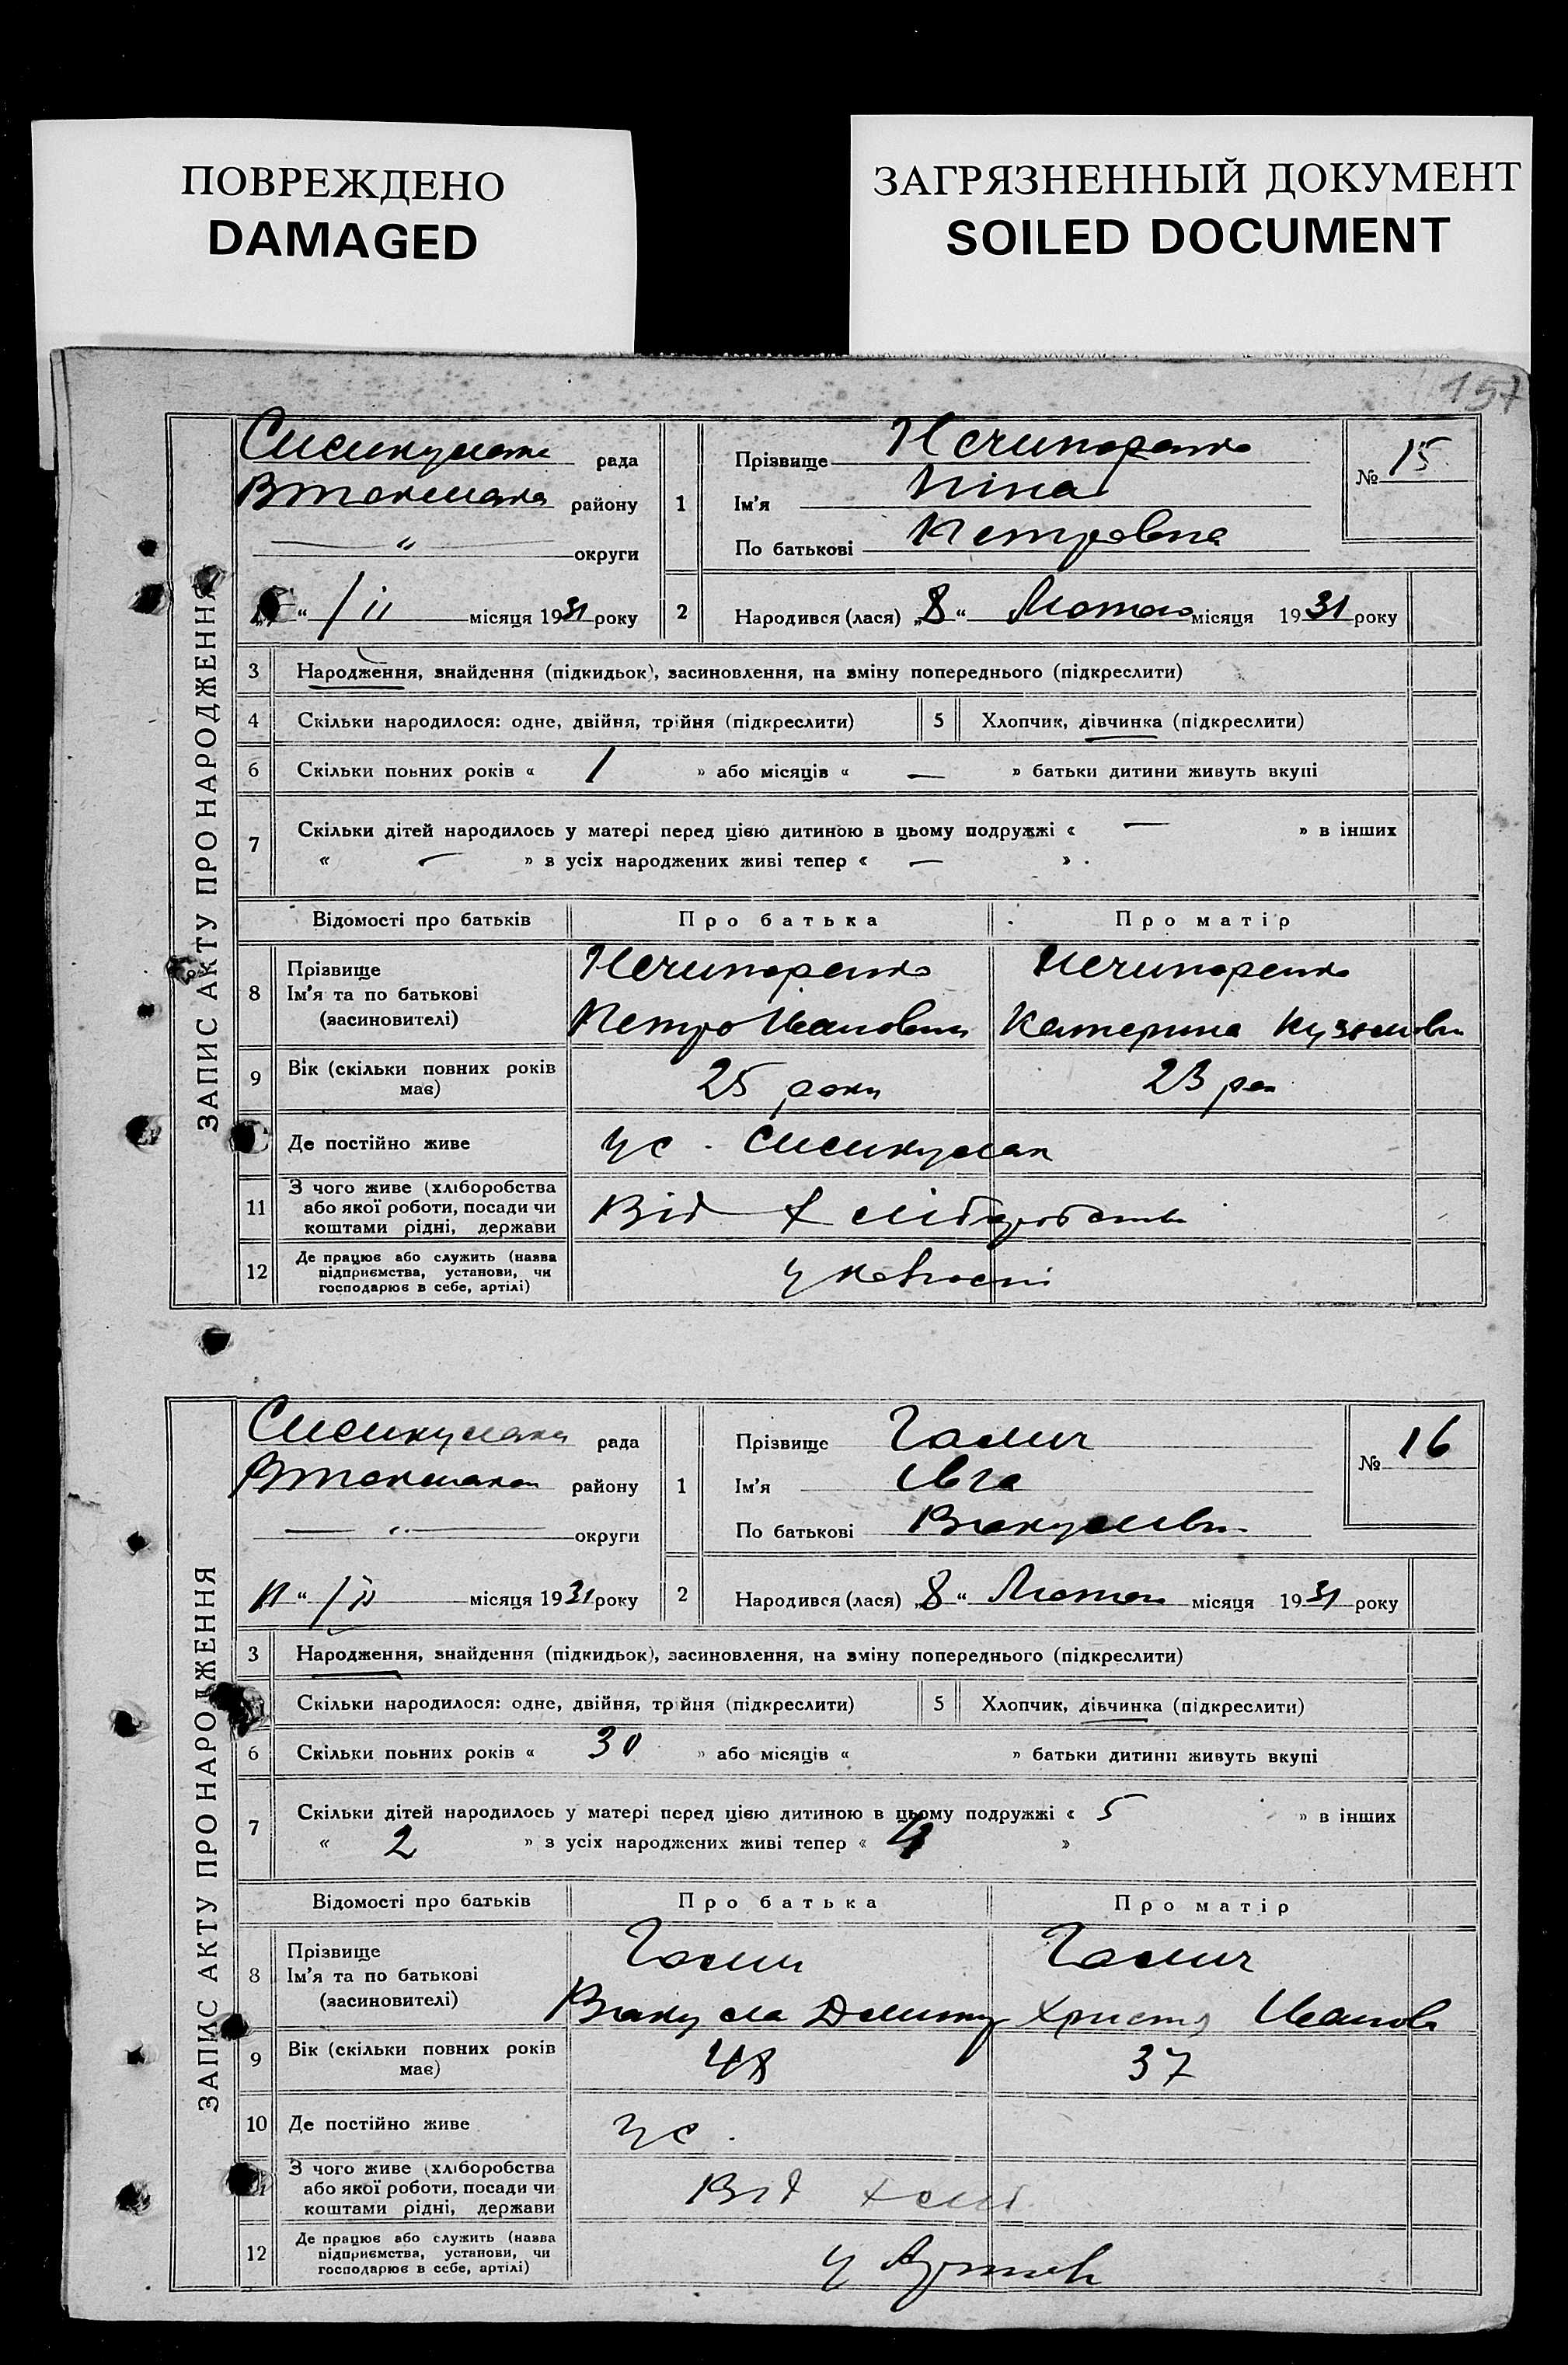 ПОВРЕЖДЕНО
DAMAGED
ЗАГРЯЗНЕННЫЙ ДОКУМЕНТ
SOILED DOCUMENT
157
ЗАПИС АКТУ ПРО НАРОДЖЕННЯ
рада
району
— " — округи
“ / ii місяця 1931 року
1
Прізвище Нечипоренко
Ім'я Ніна
По батькові Петровна
№ 15
2 Народився (лася) „8“ Лютого місяця 1931 року
3 Народження, знайдення (підкидьок), засиновлення, на зміну попереднього (підкреслити)
4 Скільки народилося: одне, двійня, трійня (підкреслити)
5 Хлопчик, дівчинка (підкреслити)
6 Скільки повних років « 1 » або місяців « — » батьки дитини живуть вкупі
7 Скільки дітей народилось у матері перед цією дитиною в цьому подружжі « — » в інших
« — » з усіх народжених живі тепер « — » .
Відомості про батьків Про батька Про матір
8 Прізвище
Ім'я та по батькові
(засиновителі)
Нечипоренко
Петро Іванович
Нечипоренко
Катерина Кузьмовн
9 Вік (скільки повних років має)
25 роки
23 рок
Де постійно живе
у с.
11 З чого живе (хліборобства
або якої роботи, посади чи
коштами рідні, держави
Від хліборобства
12 Де працює або служить (назва
підприємства, установи, чи
господарює в себе, артілі)
ЗАПИС АКТУ ПРО НАРОДЖЕННЯ
рада
району
— " — округи
11 “ / ii місяця 1931 року
1
Прізвище Галич
Ім'я Ивга
По батькові Вакуловн
№ 16
2 Народився (лася) „8“ Лютого місяця 1931 року
3 Народження, знайдення (підкидьок), засиновлення, на зміну попереднього (підкреслити)
Скільки народилося: одне, двійня, трійня (підкреслити)
5 Хлопчик, дівчинка (підкреслити)
6 Скільки повних років « 30 » або місяців « » батьки дитини живуть вкупі
7 Скільки дітей народилось у матері перед цією дитиною в цьому подружжі « 5 » в інших
« 2 » з усіх народжених живі тепер « 4 »
Відомості про батьків Про батька Про матір
8 Прізвище
Ім'я та по батькові
(засиновителі)
Галич
Вакула
Галич
Христя Іванов
9 Вік (скільки повних років має)
48
37
10 Де постійно живе
у с.
З чого живе (хліборобства
або якої роботи, посади чи
коштами рідні, держави
Від хліб
12 Де працює або служить (назва
підприємства, установи, чи
господарює в себе, артілі)
у Артілі